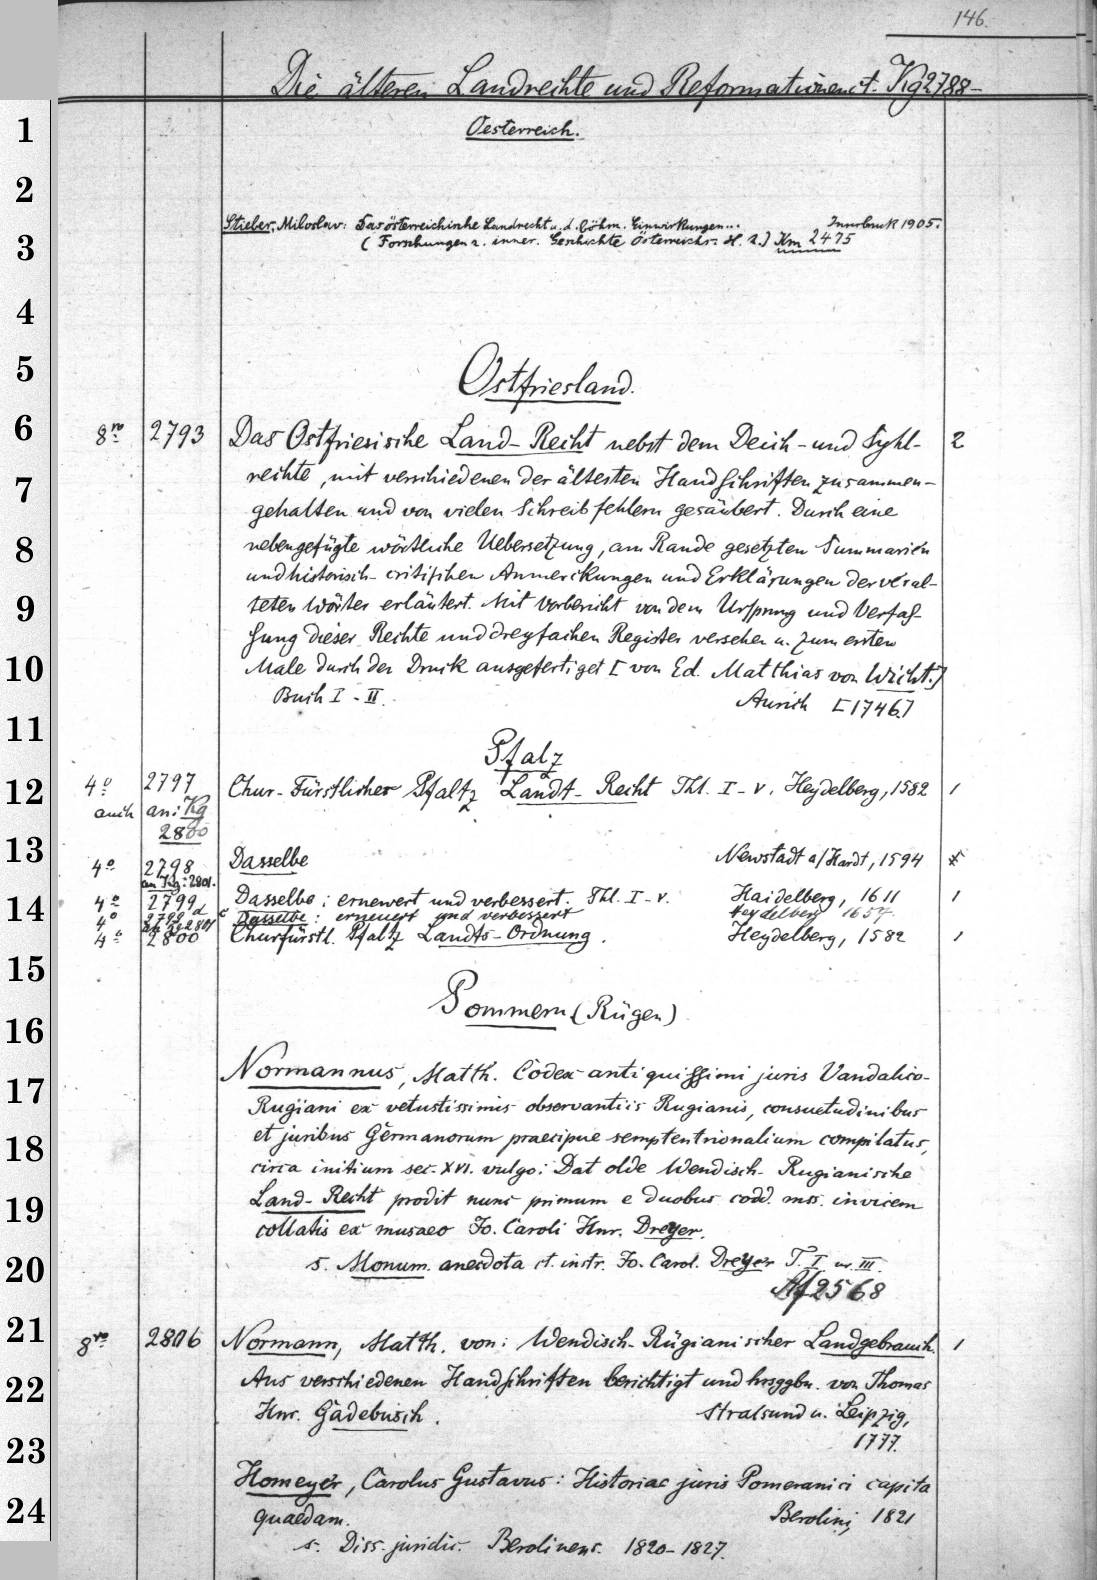 146.
Die älteren Landrechte und Reformationen ct. Kg2788-
Oesterreich.
Stieber, Miloslav: Das österreichische Landrecht u. d. böhm. Einwirkungen... Innsbruck 1905.
(Forschungen z. inner. Geschichte Österreichs. H. 2.) Km 2475
Ostfriesland.
8ro 2793 Das Ostfriesische Land-Recht nebst dem Deich- und Syhl- 2
rechte, mit verschiedenen der ältesten Handschriften zusammen-
gehalten und von vielen Schreibfehlern gesäubert. Durch eine
nebengefügte wörtliche Uebersetzung, am Rande gesetzten Summarien
und historisch-critischen Anmerckungen und Erklärungen der veral-
teten Wörter erläutert. Mit Vorbericht von dem Ursprung und Verfas-
sung dieser Rechte und dreyfachen Register versehen u. zum ersten
Male durch den Druck ausgefertiget [von Ed. Matthias von Wicht.]
Buch I-II. Aurich [1746.]
Pfalz
4o 2797 Chur-Fürstlicher Pfaltz Landt-Recht Thl. I-V. Heydelberg, 1582 1
auch an: Kg
2800
4o 2798 Dasselbe Newstadt a/Hardt, 1594
an Kg: 2801.
4o 2799 Dasselbe: ernewert und verbessert. Thl. I-V. Haidelberg, 1611 1
4o 2799d Dasselbe: erneuert und verbessert Heydelberg 1657.
4o 2800 Churfürstl. Pfaltz Landts-Ordnung. Heydelberg, 1582 1
Pommern (Rügen)
Normannus, Matth. Codex antiquissimi juris Vandalico-
Rugiani ex vetustissimis observantiis Rugianis, consuetudinibus
et juribus Germanorum praecipue semptentrionalium compilatus,
circa initium sec. XVI. vulgo: Dat olde Wendisch-Rugianische
Land-Recht prodit nunc primum e duobus codd. mss. invicem
collatis ex musaeo Jo. Caroli Hnr. Dreyer.
s. Monum. anecdota ct. instr. Jo. Carol. Dreyer T. I nr. III.
Af2568
8vo 2806 Normann, Matth. von: Wendisch-Rügianischer Landgebrauch. 1
Aus verschiedenen Handschriften berichtigt und hrsggbn. von Thomas
Hnr. Gadebusch. Stralsund u. Leipzig,
1777.
Homeyer, Carolus Gustavus: Historiae juris Pomeranici capita
quaedam. Berolini, 1821
s. Diss. juridic. Berolinens. 1820-1827.
1
2
3
4
5
6
7
8
9
10
11
12
13
14
15
16
17
18
19
20
21
22
23
24